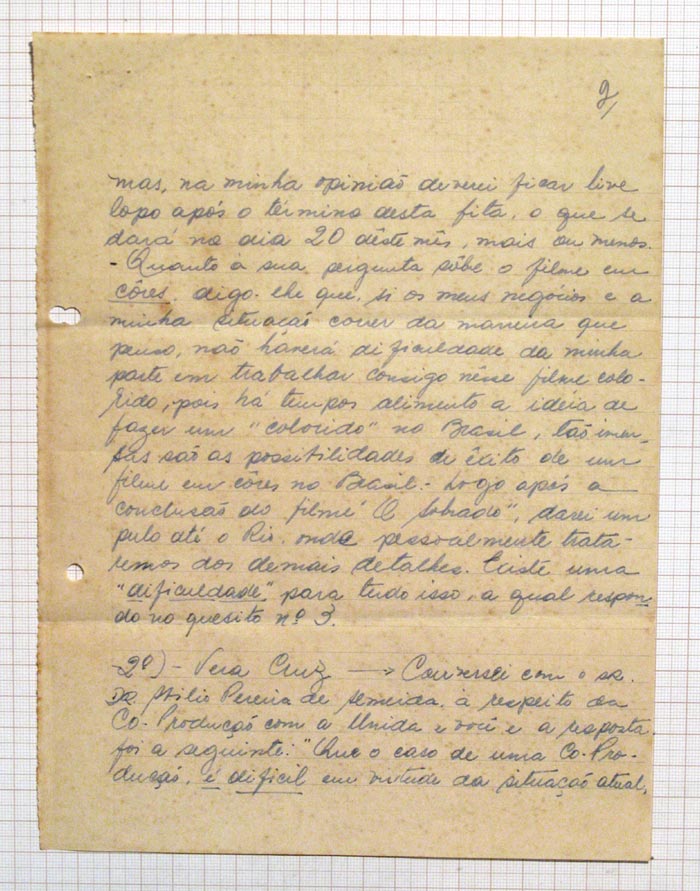 2,
mas, na minha opinião deverei ficar livre
logo após o término desta fita, o que se
dará no dia 20 dêste mês, mais ou menos.
- Quanto à sua pergunta sôbe o filme em
côres, digo-lhe que, si os meus negócios e a
minha situação correr da maneira que
penso, não háverá dificuldade da minha
parte em trabalhar consigo nêsse filme colo-
rido, pois há tempos alimento a ideia de
fazer um "colorido" no Brasil, tão imen-
sas são as possibilidades de êxito de um
filme em côres no Brasil. - Logo após a
conclusão do filme "O Sobrado", darei um
pulo até o Rio, onde pessoalmente trata-
remos dos demais detalhes. Existe uma
"dificuldade", para tudo isso, a qual respon-
do no quesito nº 3.
-2º) - Vera Cruz → Conversei com o sr.
Abilio Pereira de Almeida, à respeito da
Co-Produção com a Unida e você e a resposta
foi a seguinte: "Que o caso de uma Co-Pro-
dução, é dificil em virtude da situação atual,